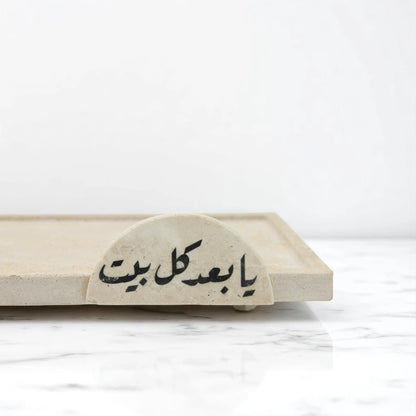 يا بعد كل بيت